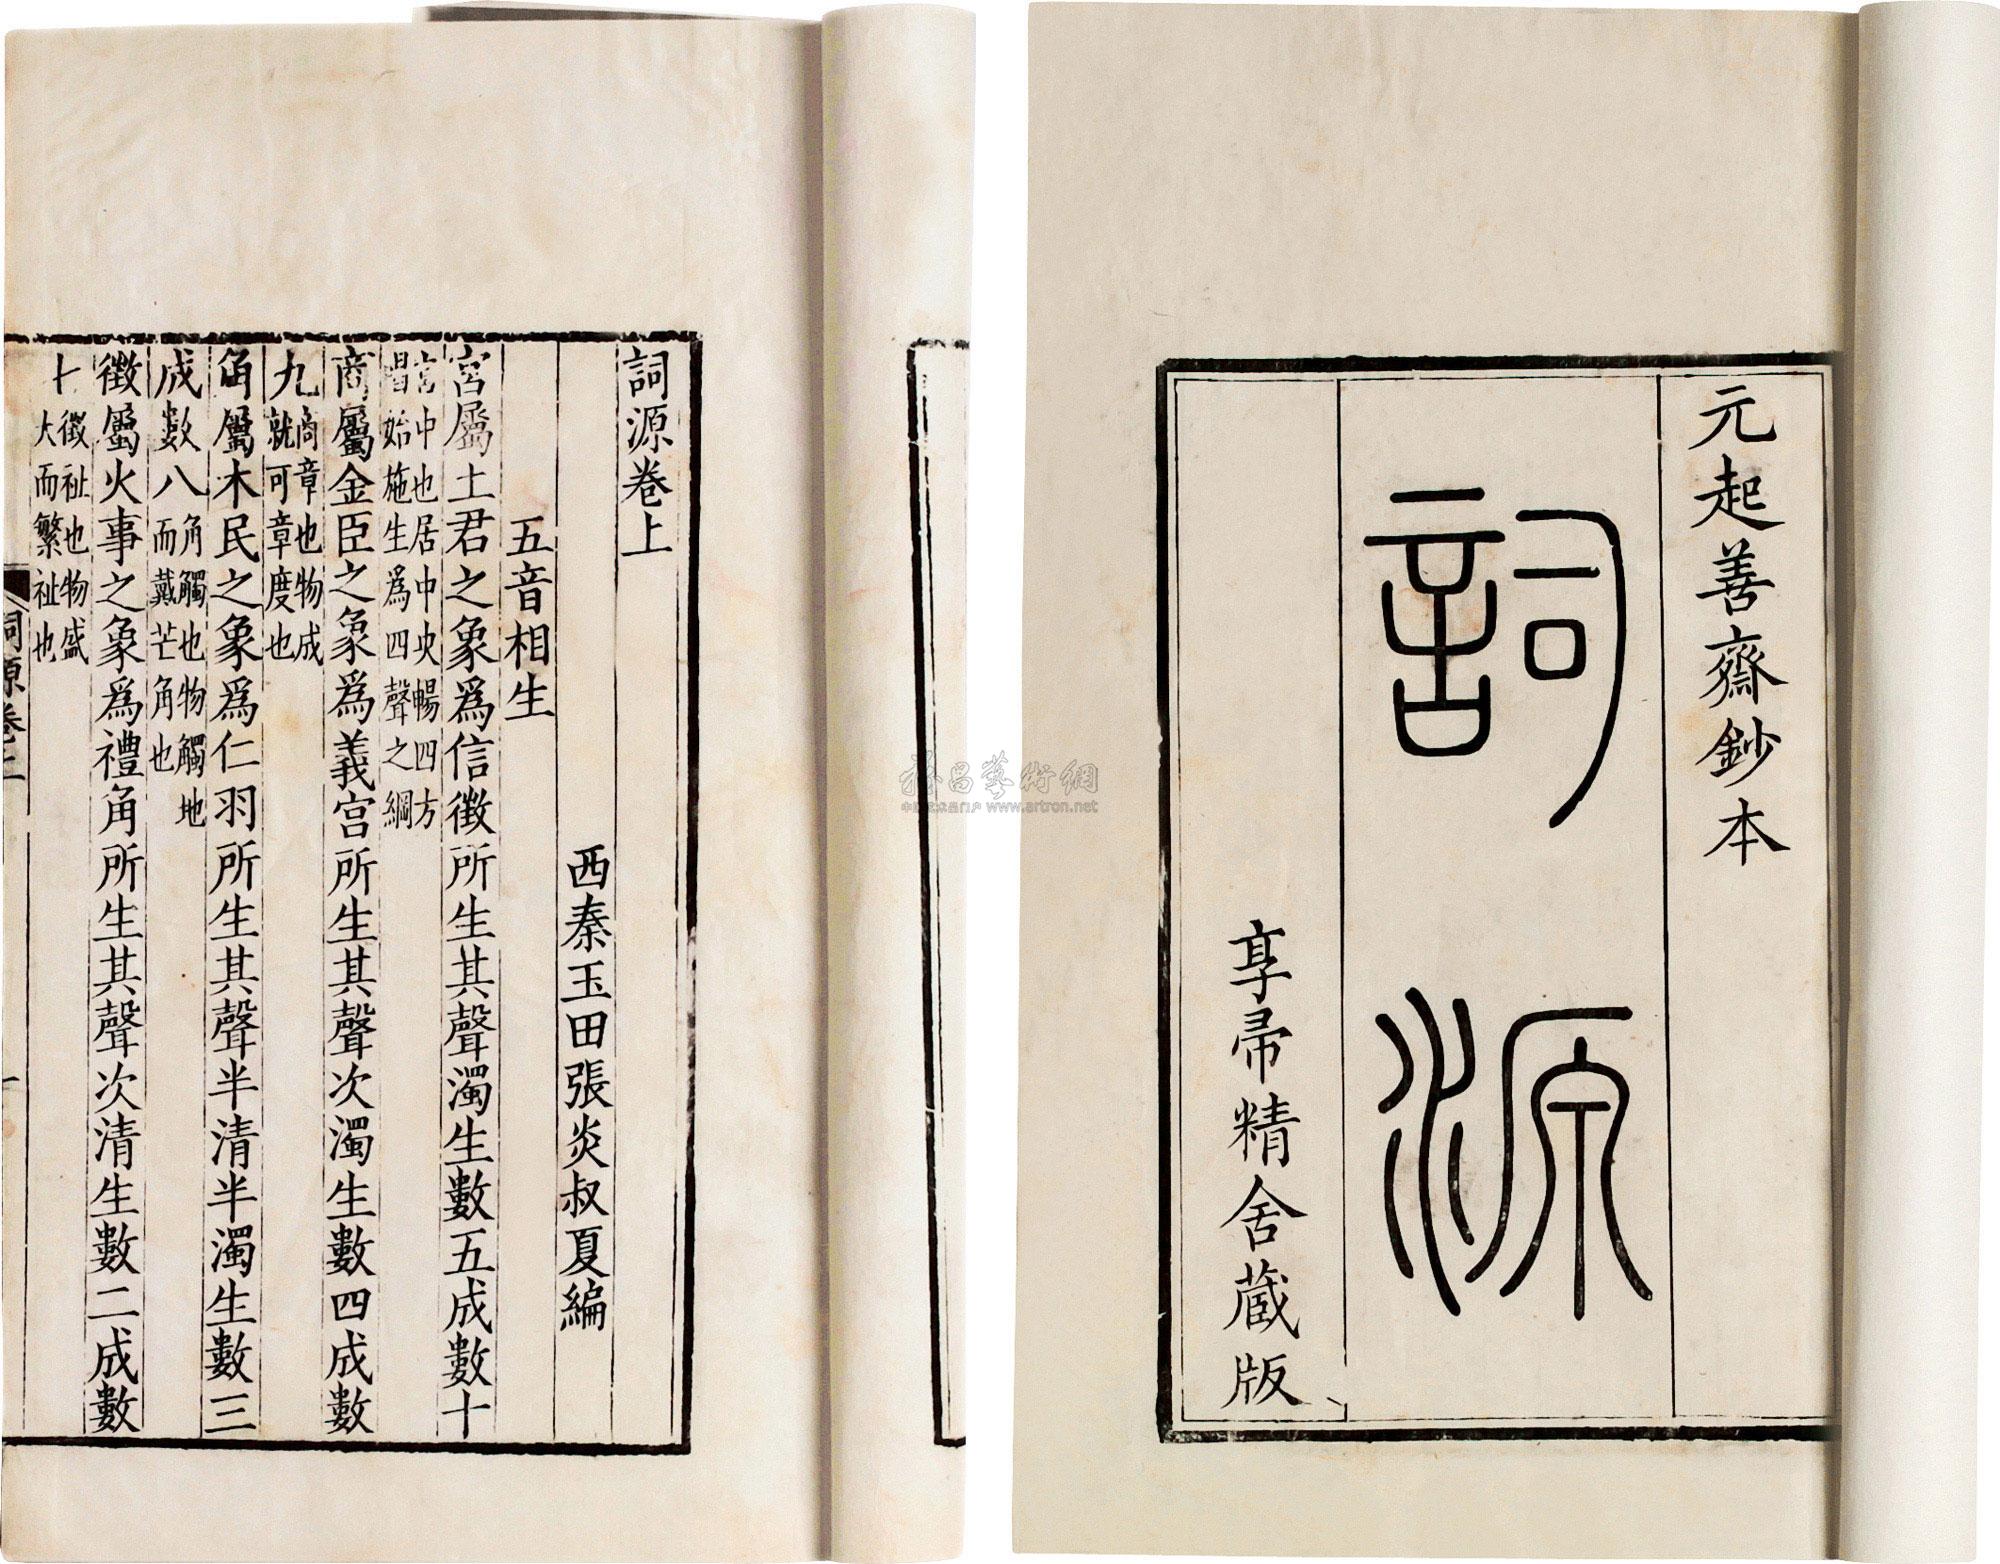 元起善齋鈔本
詞源
享帚精舍藏版
詞源卷上
西秦玉田張炎叔夏編
五音相生
宮屬土君之象爲信徵所生其聲濁生數五成數十
宮中也居中央暢四方
唱始施生爲四聲之綱
商屬金臣之象爲義宮所生其聲次濁生數四成數
九
商章也物成
就可章度也
角屬木民之象爲仁羽所生其聲半清半濁生數三
成數八
角觸也物觸地
而戴芒角也
徵屬火事之象爲禮角所生其聲次清生數二成數
七
徵祉也物盛
大而繁祉也
詞源卷上
一
中国艺术品门户 www.artron.net